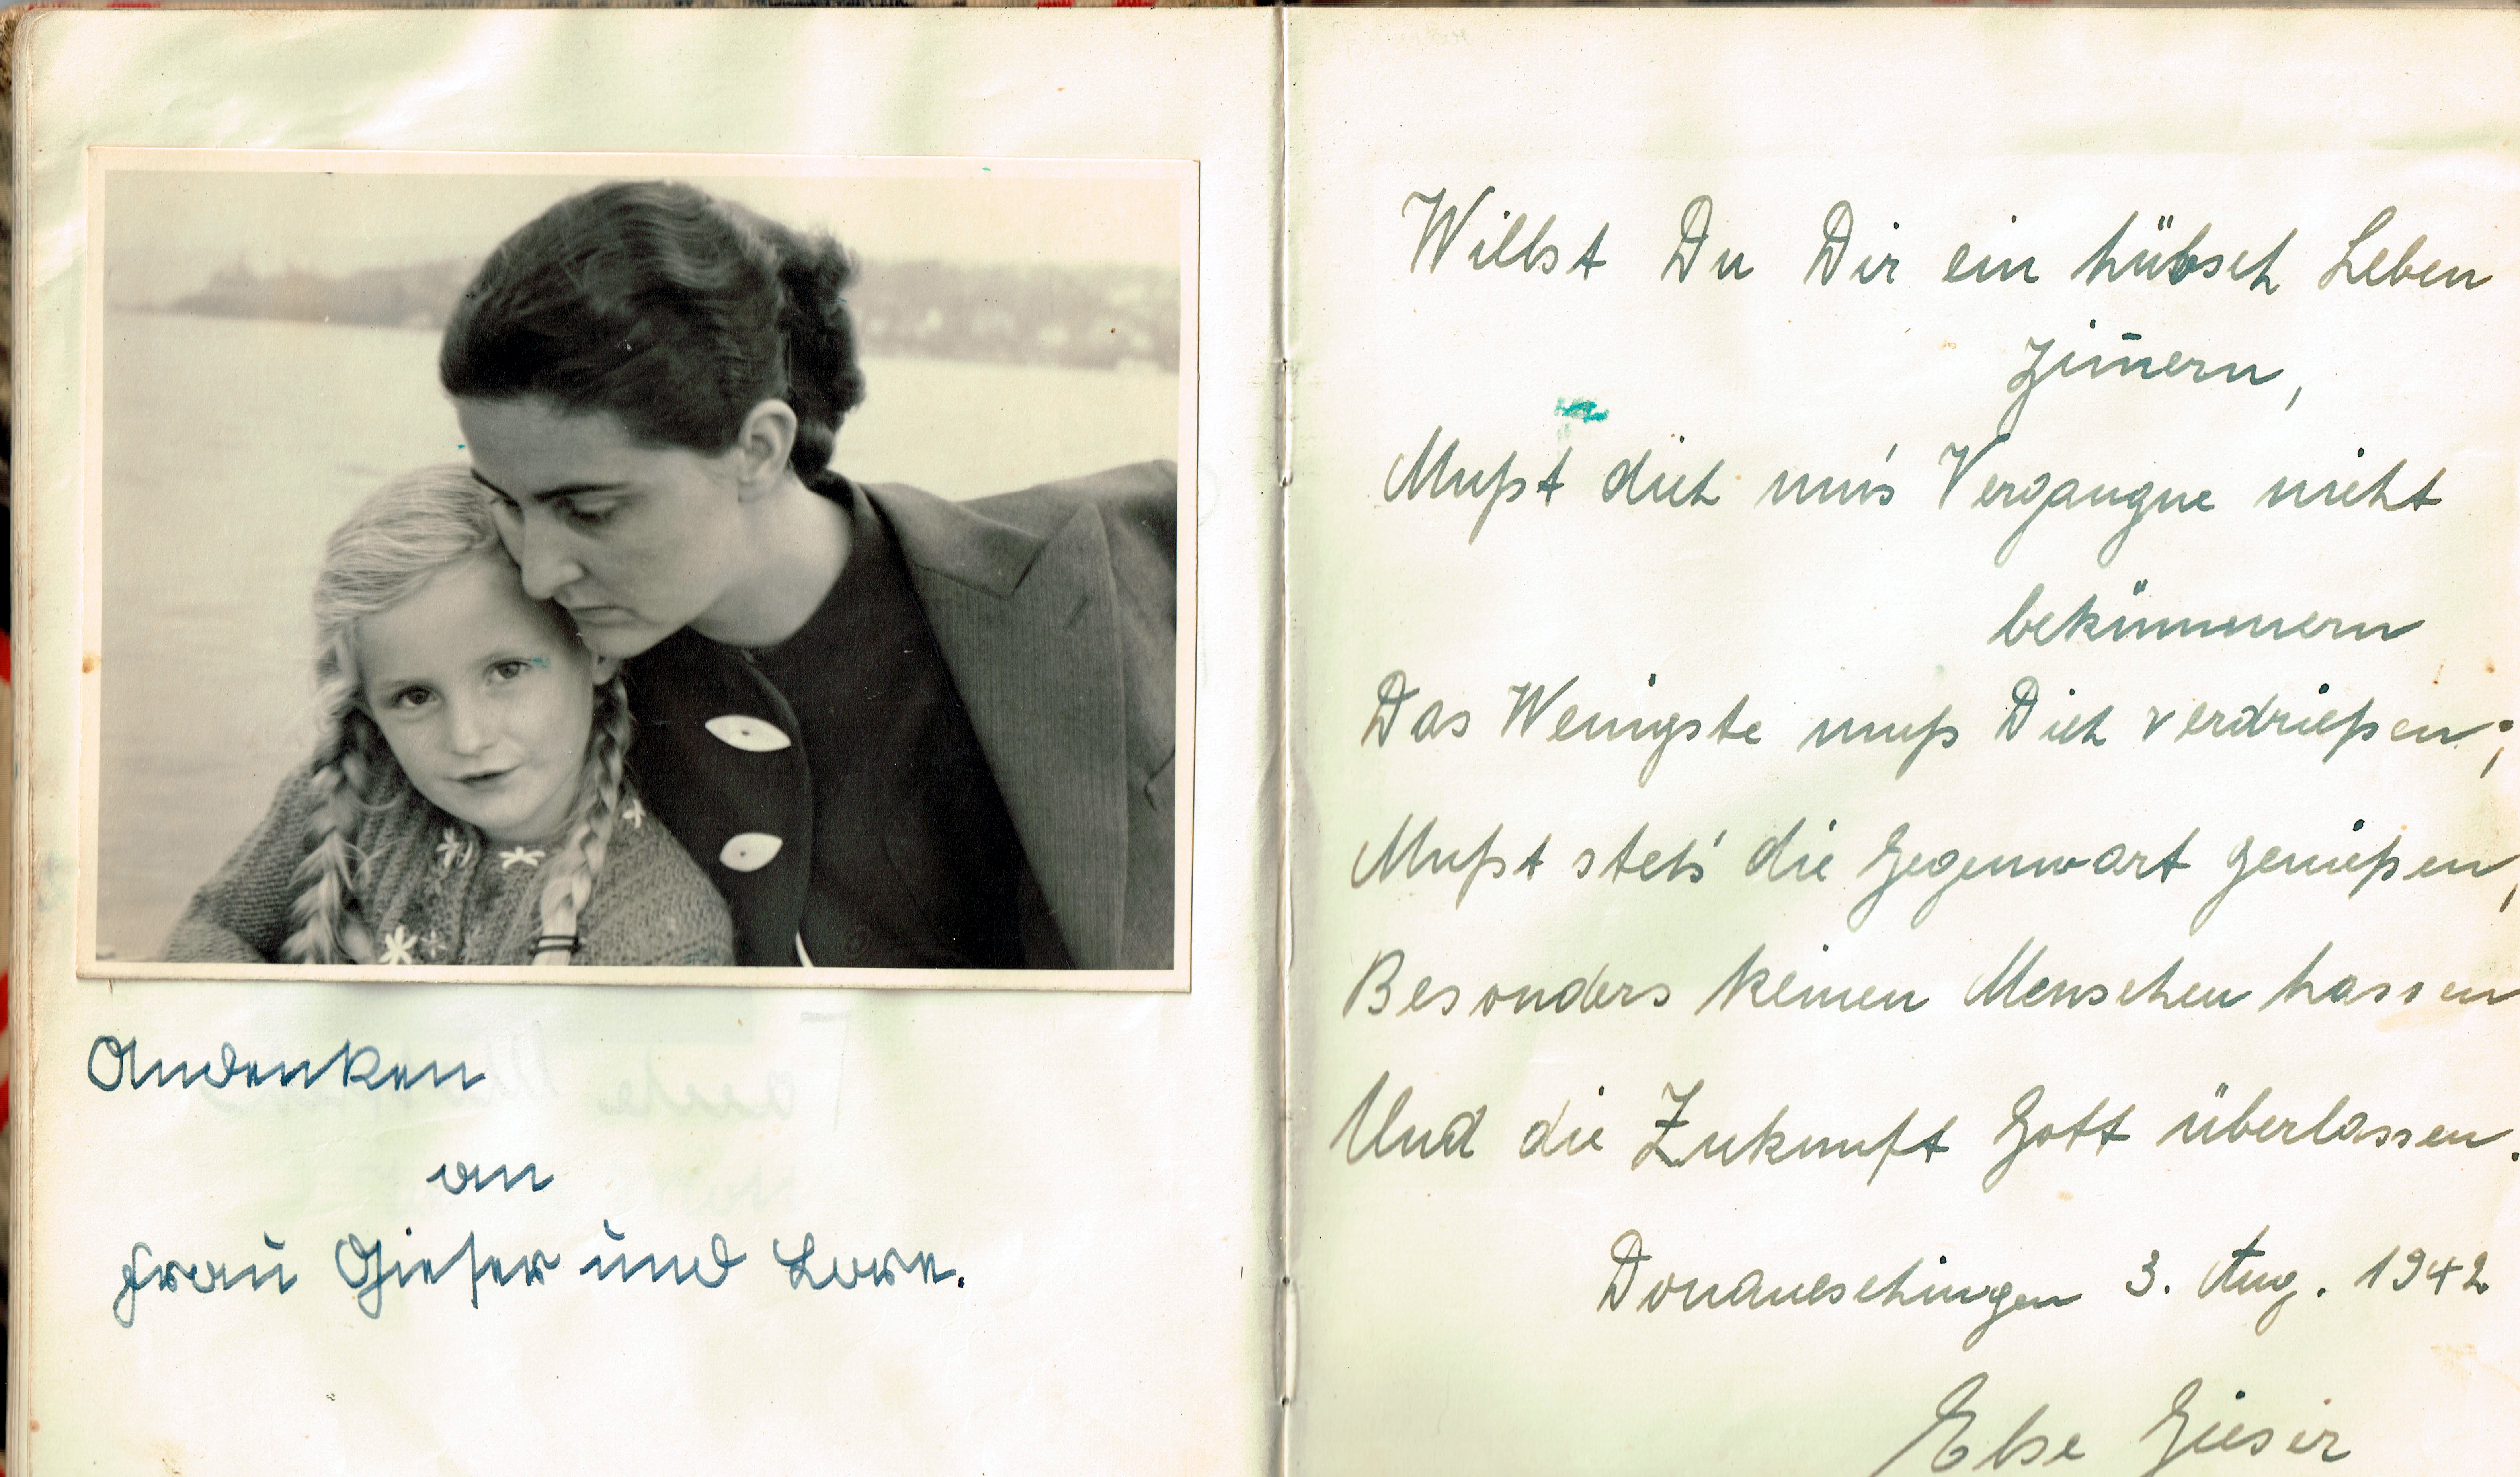 Andenken
an
Frau Gieser und Lore.
Willst Du Dir ein hübsch Leben
zim̄ern,
Mußt dich um's Vergangne nicht
bekümmern
Das Wenigste muß Dich verdrießen;
Mußt stets die Gegenwart genießen,
Besonders keinen Menschen hassen
Und die Zukunft Gott überlassen.
Donaueschingen 3. Aug. 1942
Else Gieser